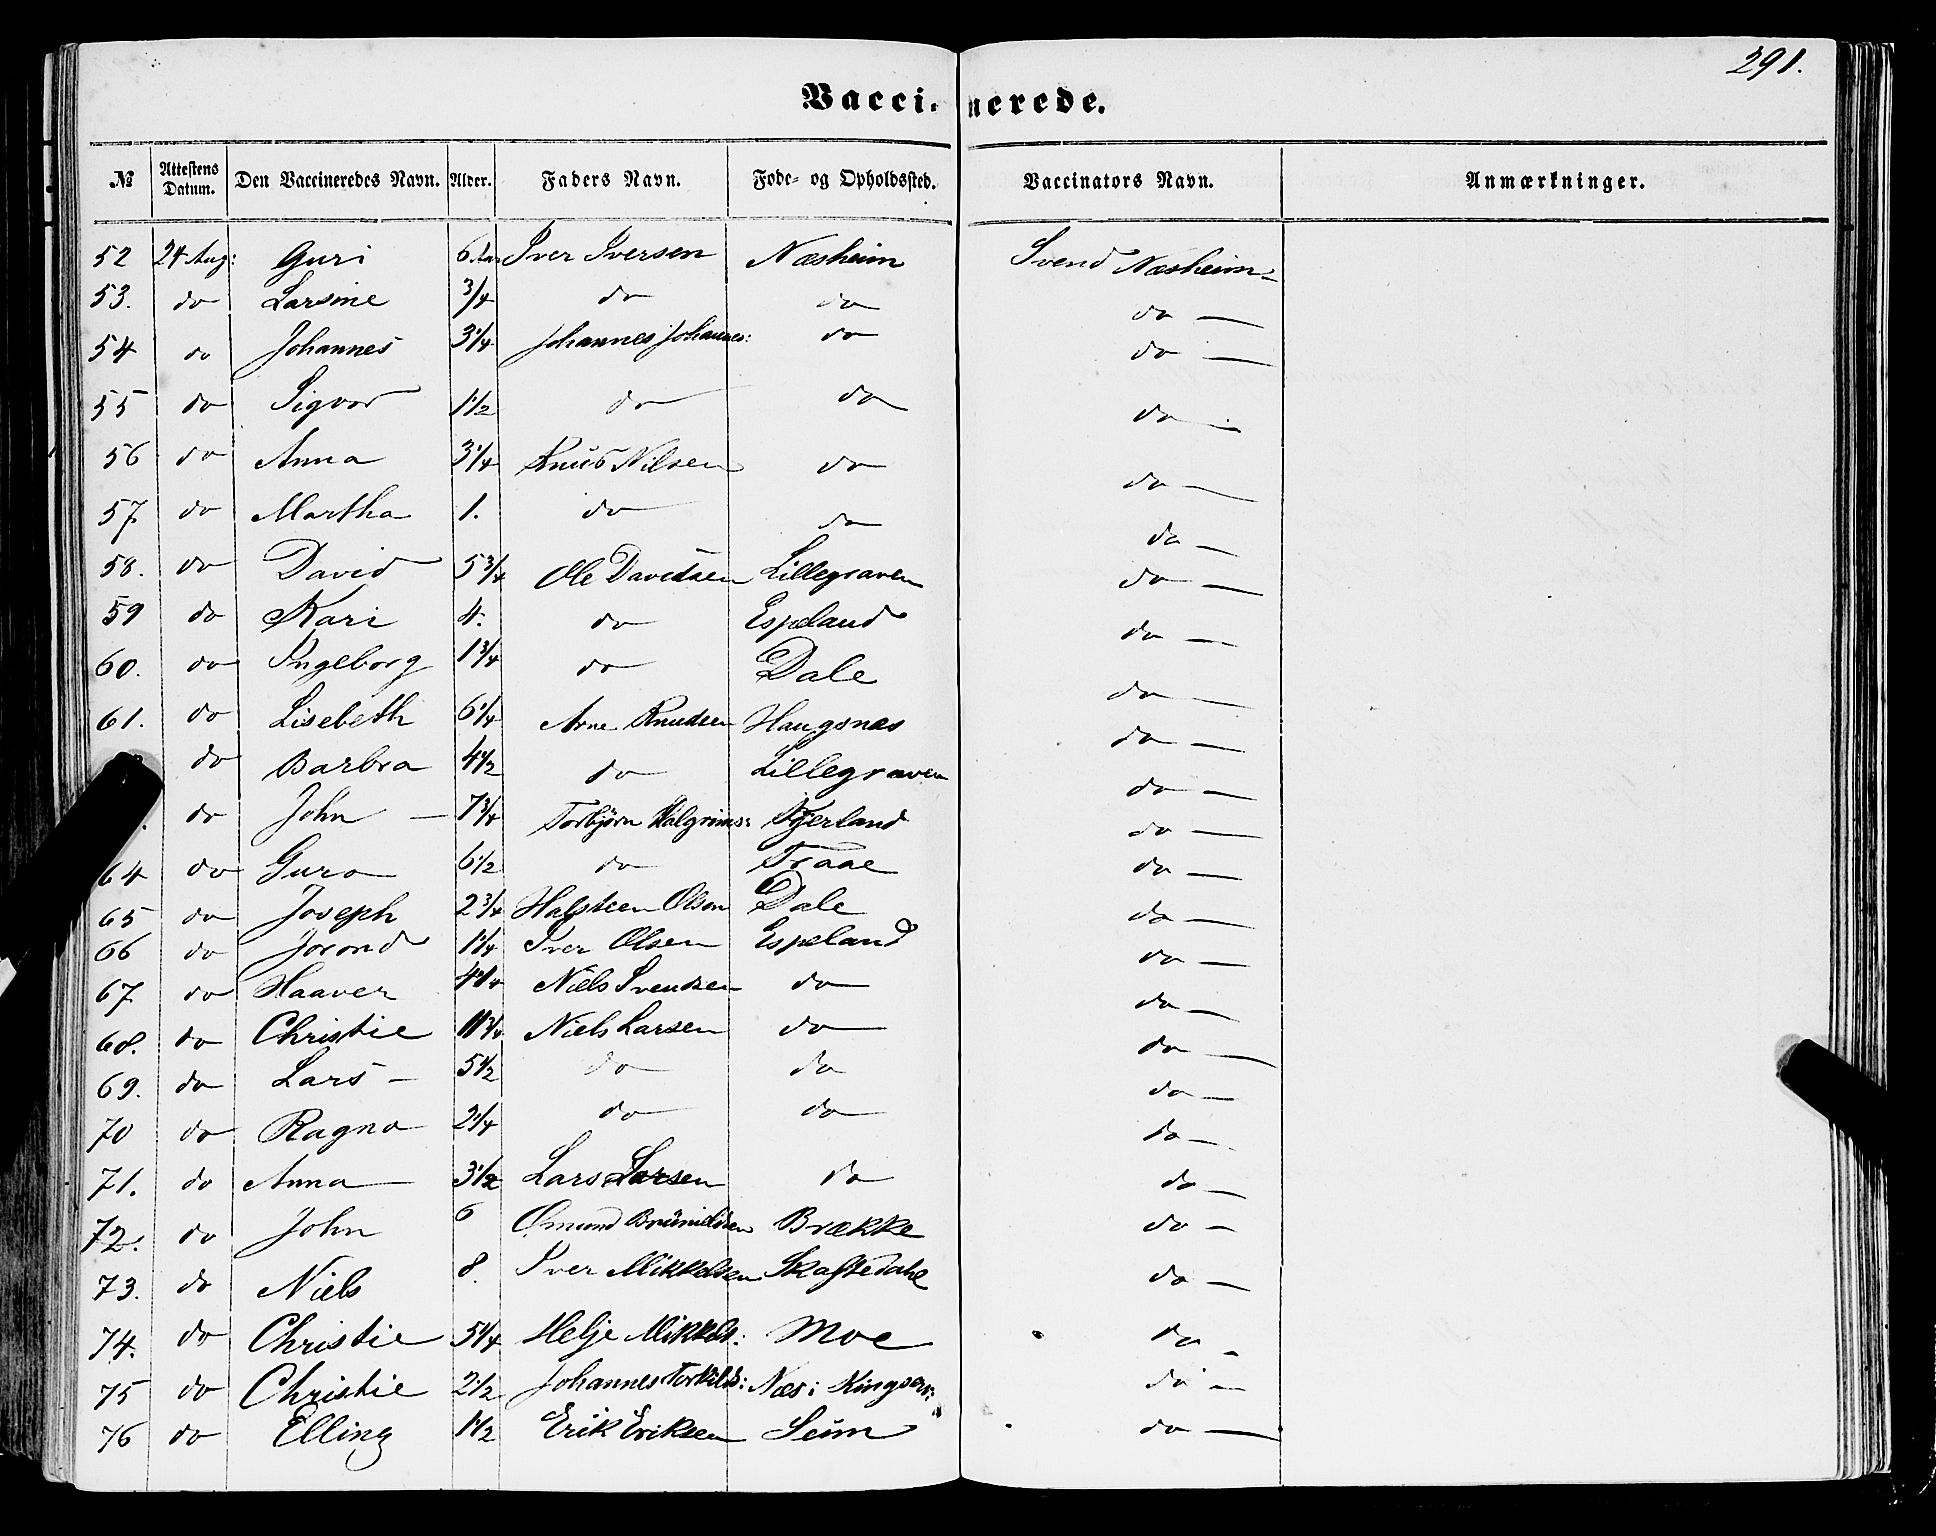 291.
Vaccinerede.
№ Attestens Datum. Den Vaccineredes Navn. Alder. Faders Navn. Føde- og Opholdssted. Vaccinators Navn. Anmærkninger.
52 24 Aug: Guri 6 Aar Iver Iversen Næsheim Svend Næsheim
53. do Larsine 3/4 do do do —
54 do Johannes 3 1/4 Johannes Johannes: do do —
55 do Sigvor 1 1/2 do do do —
56 do Anna 3 1/4 Knud Nilsen do do —
57 do Martha 1. do do do —
58. do David 5 3/4 Ole Davidsen Lillegraven do —
59 do Kari 4. do Espeland do —
60. do Ingeborg 1 3/4 do Dale do —
61. do Lisebeth 6 1/4 Arne Knudsen Haugsnæs do —
do Barbra 4 1/2 do Lillegraven do —
do John — 7 3/4 Torbjørn Halgrims: Kjerland do —
64 do Guro 6 1/2 do Traae do —
65 do Joseph 2 3/4 Halsteen Olson Dale do —
66 do Jorond 1 1/4 Iver Olsen Espeland do —
67 do Haaver 4 1/4 Niels Svendsen do do —
68. do Christie 11 3/4 Niels Larsen do do —
69. do Lars — 5 1/2 do do do —
70 do Ragna 2 1/4 do do do —
71. do Anna 3 1/2 Lars Larsen do do —
72. do John 6 Omund Brünieldsen Brække do —
73. do Niels 8. Iver Mikkelsen Skaftedahl do —
74. do Christie 5 1/4 Helje Mikkels: Moe do —
75 do Christie 2 1/2 Johannes Torkilds: Næs i Kingserv: do —
76 do Elling 1 1/2 Erik Eriksen Seim do —